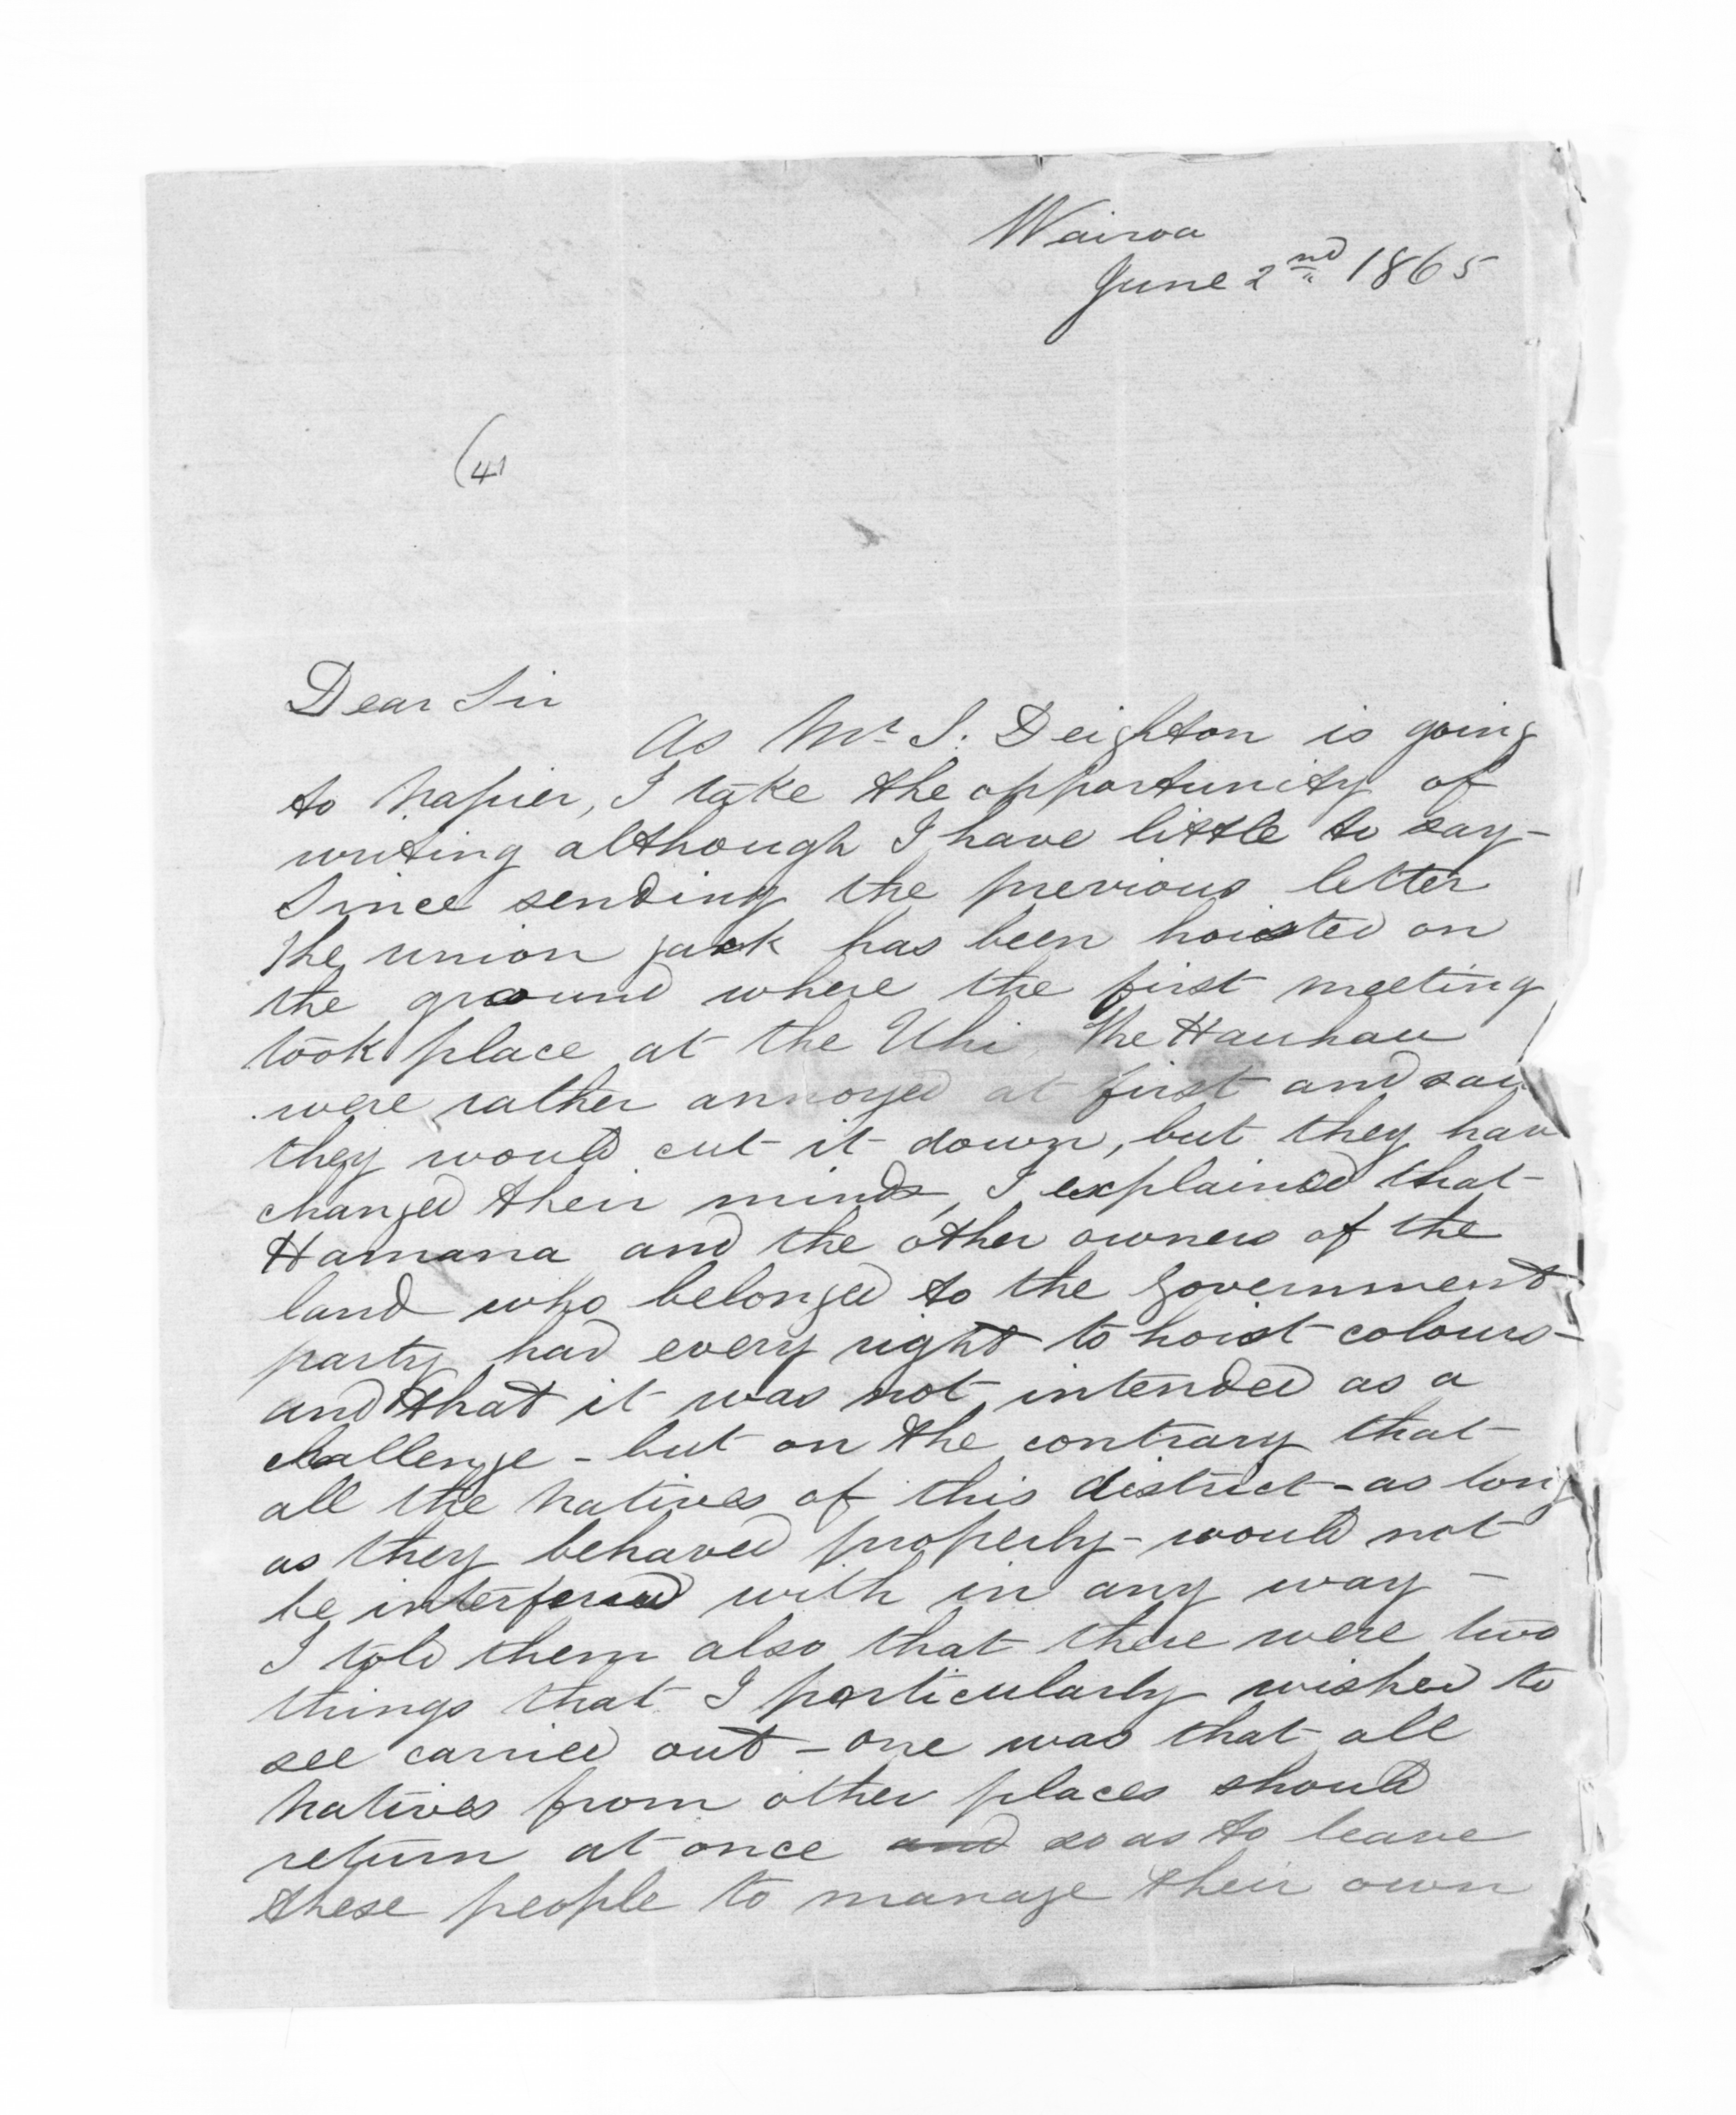 Wairoa
June 2nd 1865
(41
Dear Sir
As Mr S. Deighton is going
to Napier, I take the opportunity of
writing although I have little to say -
Since sending the previous letter
the union jack has been hoisted on
the ground where the first meeting
took place at the Uhi. The Hauhau
were rather annoyed at first and said
they would cut it down, but they have
changed their minds, I explained that
Hamana and the other owners of the
land who belonged to the Government
party had every right to hoist colours -
and that it was not intended as a
challenge - but on the contrary that
all the natives of this district - as long
as they behaved properly - would not
be interfered with in any way -
I told them also that there were two
things that I particularly wished to
see carried out - one was that all
natives from other places should
return at once and so as to leave
these people to manage their own